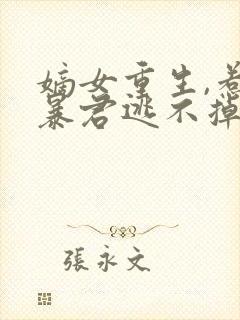 嫡女重生,惹
暴君逃不掉
張永文